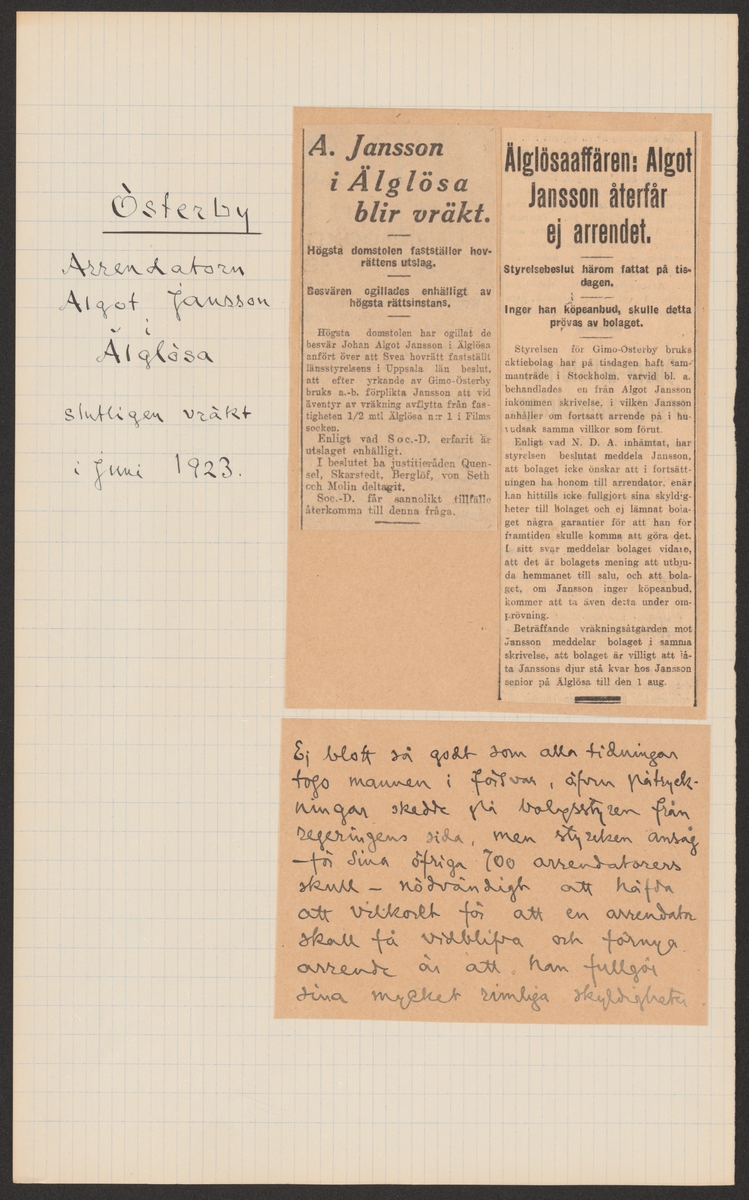 Österby
Arrendatorn
Algot Jansson
i
Älglösa
slutligen vräkt
i Juni 1923.
A. Jansson
i Älglösa
blir vräkt.
Högsta domstolen fastställer hov-
rättens utslag.
Besvären ogillades enhälligt av
högsta rättsinstans.
Högsta domstolen har ogillat de
besvär Johan Algot Jansson i Älglösa
anfört över att Svea hovrätt fastställt
länsstyrelsens i Uppsala län beslut,
att efter yrkande av Gimo-Österby
bruks a.-b. förplikta Jansson att vid
äventyr av vräkning avflytta från fas-
tigheten 1/2 mtl Älglösa n:r 1 i Films
socken.
Enligt vad Soc.-D. erfarit är
utslaget enhälligt.
I beslutet ha justitieråden Quen-
sel, Skarstedt, Berglöf, von Seth
och Molin deltagit.
Soc.-D. får sannolikt tillfälle
återkomma till denna fråga.
Älglösaaffären: Algot
Jansson återfår
ej arrendet.
Styrelsebeslut härom fattat på tis-
dagen.
Inger han köpeanbud, skulle detta
prövas av bolaget.
Styrelsen för Gimo-Österby bruks
aktiebolag har på tisdagen haft sam-
manträde i Stockholm, varvid bl. a.
behandlades en från Algot Jansson
inkommen skrivelse, i vilken Jansson
anhåller om fortsatt arrende på i hu-
vudsak samma villkor som förut.
Enligt vad N. D. A. inhämtat, har
styrelsen beslutat meddela Jansson,
att bolaget icke önskar att i fortsätt-
ningen ha honom till arrendator, enär
han hittills icke fullgjort sina skyldig-
heter till bolaget och ej lämnat bola-
get några garantier för att han för
framtiden skulle komma att göra det.
I sitt svar meddelar bolaget vidare,
att det är bolagets mening att utbju-
da hemmanet till salu, och att bola-
get, om Jansson inger köpeanbud,
kommer att ta även detta under om-
prövning.
Beträffande vräkningsåtgärden mot
Jansson meddelar bolaget i samma
skrivelse, att bolaget är villigt att lå-
ta Janssons djur stå kvar hos Jansson
senior på Älglösa till den 1 aug.
Ej blott så godt som alla tidningar
togo mannen i försvar, äfven påtryck-
ningar skedde på bolagsstyren från
regeringens sida, men styrelsen ansåg
– för sina öfriga 700 arrendatorers
skull – nödvändigt att häfda
att villkoret för att en arrendator
skall få vidblifva och förnya
arrende är att han fullgör
sina mycket rimliga skyldigheter.